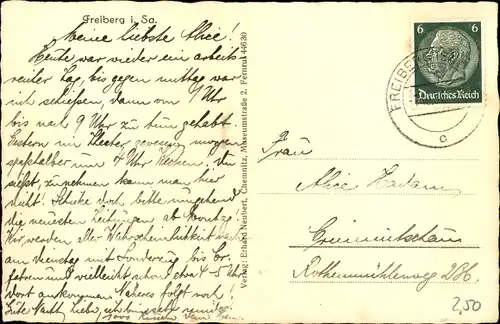 Freiberg i. Sa.
Meine liebste Alice!
Heute war wieder ein arbeits-
reicher Tag, bis gegen mittag war
ich schießen, dann von 1 Uhr
bis nach 9 Uhr zu tun gehabt
Gestern im Theater gewesen, morgen
um 4 Uhr Wecken! Du
siehst, zunehmen kann man hier
nicht! Schicke doch bitte umgehend
die neuesten Zeitungen ab Montag!
Wir werden aller Wahrscheinlichkeit nach
am Dienstag mit Sonderzug bis
fahren und vielleicht schon etwa 4-5 Uhr
dort ankommen Näheres folgt noch!
Gute Nacht, Liebe, ich bin
1000 Küsse Dein
Verlag: Erhard Neubert, Chemnitz, Museumstraße 2. Fernruf 44630
6 6
Deutsches Reich
FREIBERG
c
Frau
Alice
Crimmitschau
Rothenmühlenweg 2
2,50